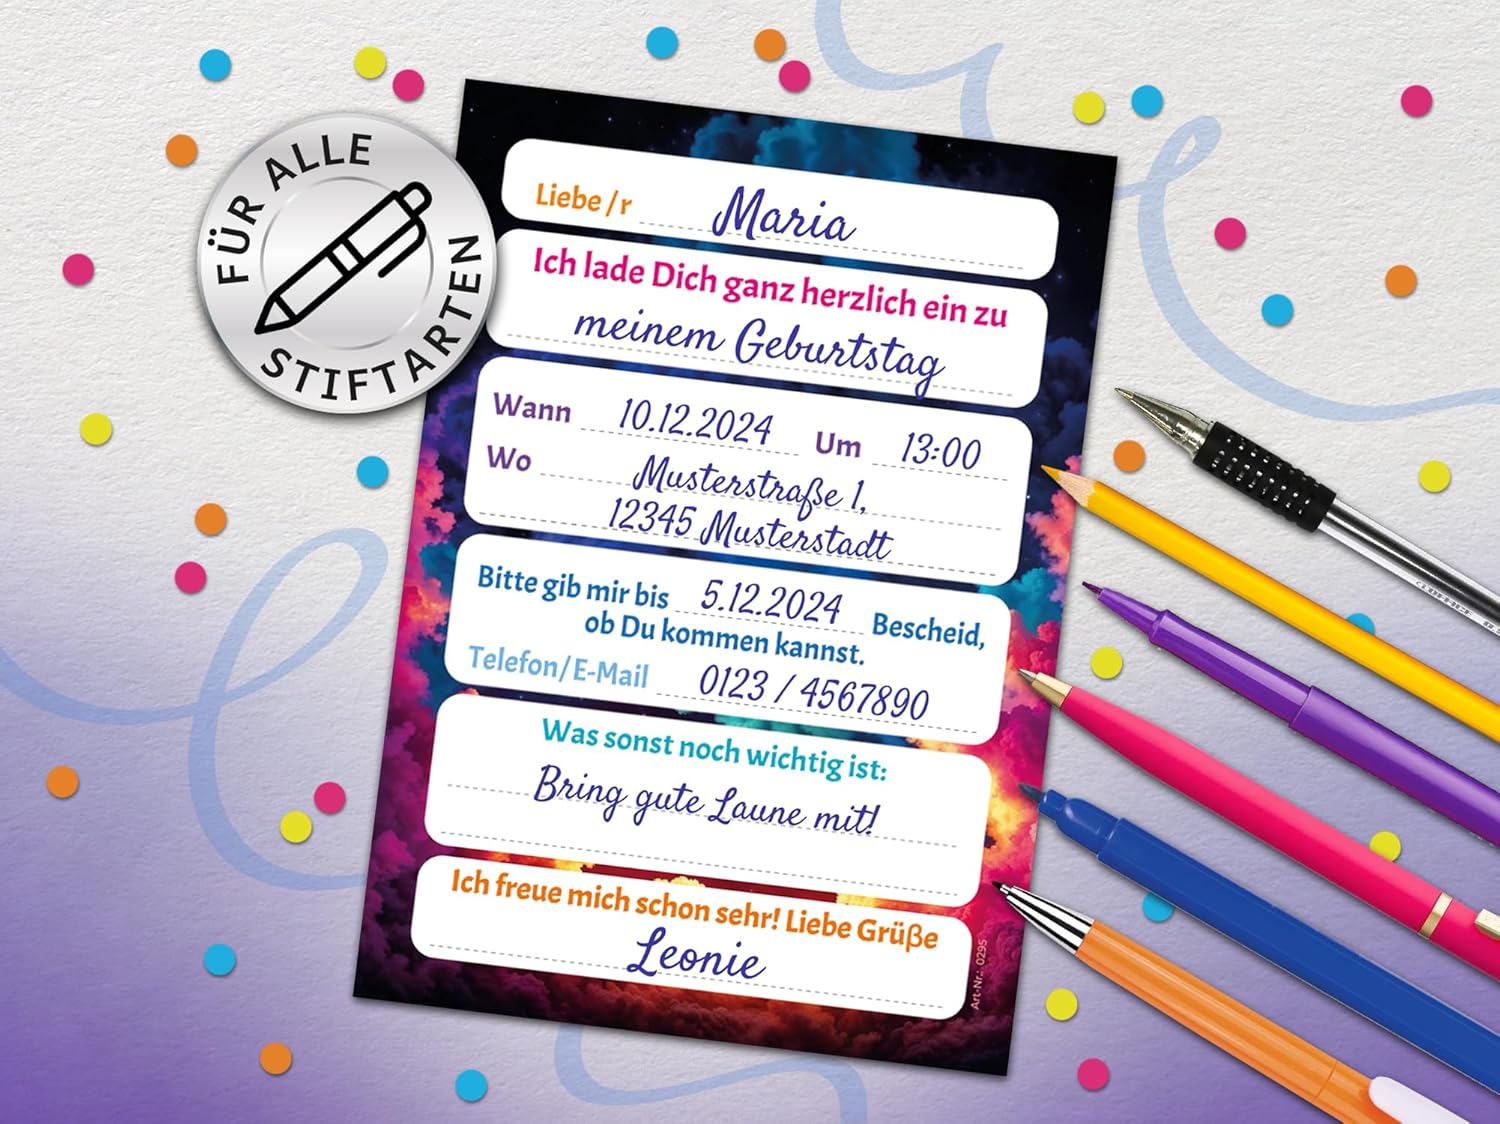 FÜR ALLE
STIFTARTEN
Liebe/r Maria
Ich lade Dich ganz herzlich ein zu
meinem Geburtstag
Wann 10.12.2024 Um 13:00
Wo Musterstraße 1,
12345 Musterstadt
Bitte gib mir bis 5.12.2024 Bescheid,
ob Du kommen kannst.
Telefon/E-Mail 0123 / 4567890
Was sonst noch wichtig ist:
Bring gute Laune mit!
Ich freue mich schon sehr! Liebe Grüße
Leonie
Art-Nr.: 0295